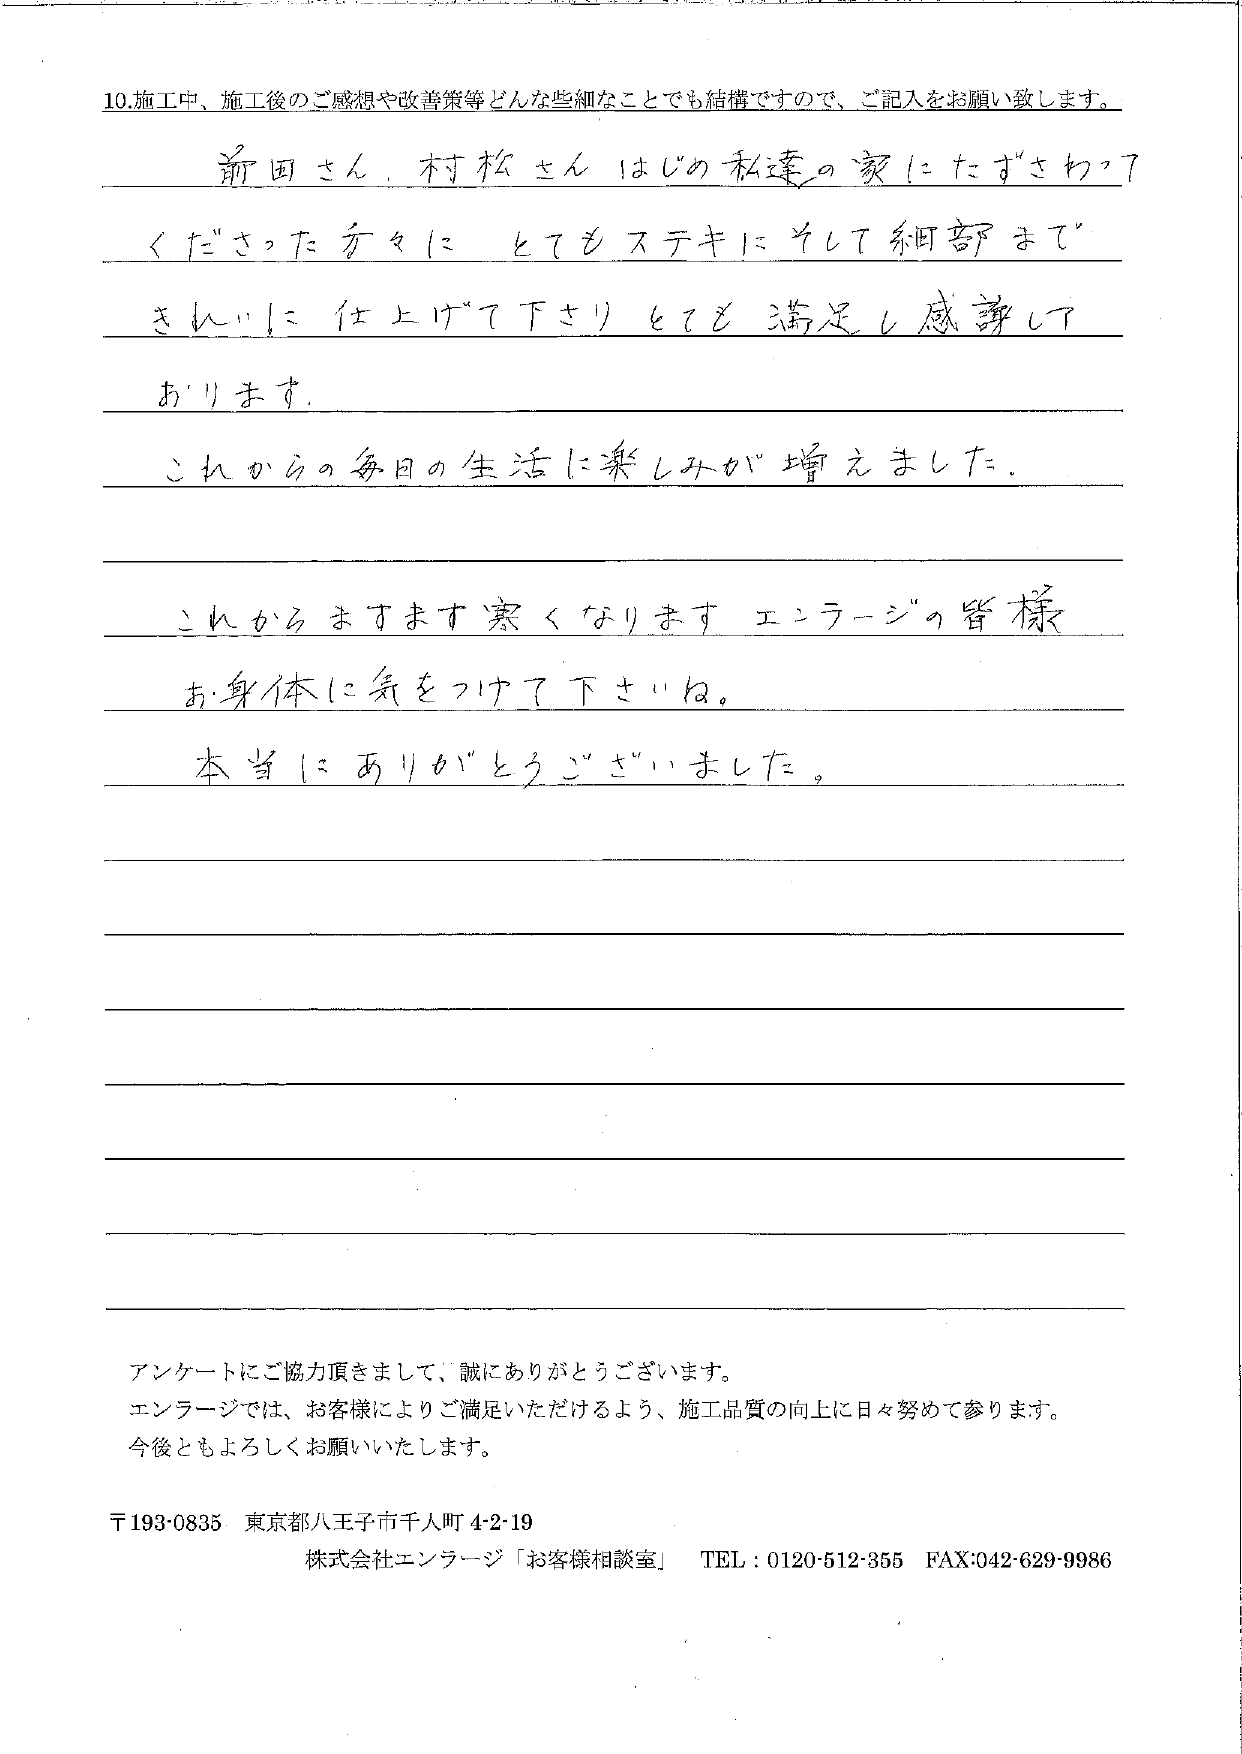 10.施工中、施工後のご感想や改善策等どんな些細なことでも結構ですので、ご記入をお願い致します。
前田さん、村松さん はじめ私達の家にたずさわって
くださった方々に とてもステキにそして細部まで
きれいに 仕上げて下さり とても 満足し感謝して
おります.
これからの毎日の生活に楽しみが増えました.
これからますます寒くなります エンラージの皆様
お身体に気をつけて下さいね。
本当にありがとうございました。
アンケートにご協力頂きまして、誠にありがとうございます。
エンラージでは、お客様によりご満足いただけるよう、施工品質の向上に日々努めて参ります。
今後ともよろしくお願いいたします。
〒193-0835 東京都八王子市千人町 4-2-19
株式会社エンラージ「お客様相談室」 TEL:0120-512-355 FAX:042-629-9986